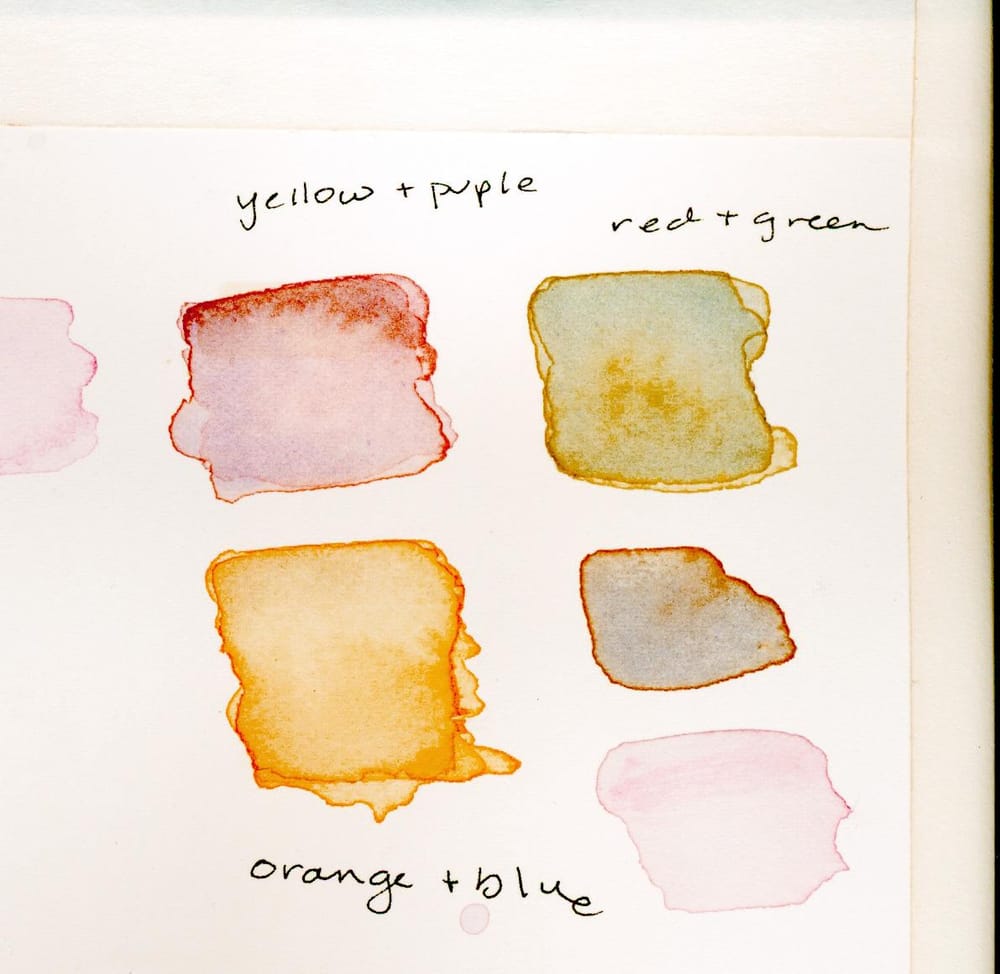 yellow + puple
red + green
orange + blue